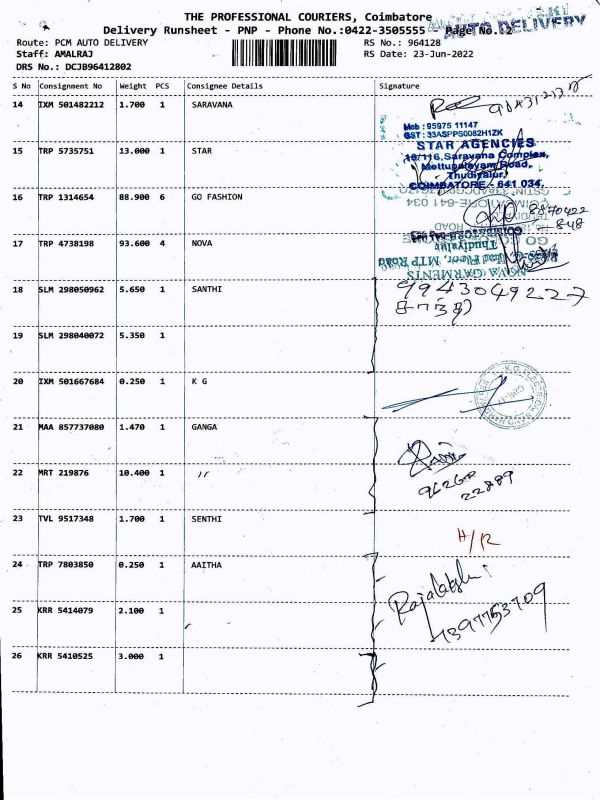 THE PROFESSIONAL COURIERS, Coimbatore
Delivery Runsheet - PNP - Phone No.:0422-3505555 - Page No.:2
AUTO DELIVERY
Route: PCM AUTO DELIVERY RS No.: 964128
Staff: AMALRAJ RS Date: 23-Jun-2022
DRS No.: DCJB96412802
S No Consignment No Weight PCS Consignee Details Signature
14 IXM 501482212 1.700 1 SARAVANA
Mob : 95975 11147
GST : 33ASPPS0082H1ZK
STAR AGENCIES
15 TRP 5735751 13.000 1 STAR
10/116, Saravana Complex,
Mettupalayam Road,
Thudiyalur,
COIMBATORE - 641 034.
16 TRP 1314654 88.900 6 GO FASHION
8870422
848
17 TRP 4738198 93.600 4 NOVA
Thudiyalur
IInd Floor, MTP Road
NOVA GARMENTS
18 SLM 298050962 5.650 1 SANTHI 9943049227
19 SLM 298040072 5.350 1
20 IXM 501667684 0.250 1 K G
21 MAA 857737080 1.470 1 GANGA
22 MRT 219876 10.400 1 〃
22889
23 TVL 9517348 1.700 1 SENTHI H/R
24 TRP 7803850 0.250 1 AAITHA
25 KRR 5414079 2.100 1
7397753709
26 KRR 5410525 3.000 1